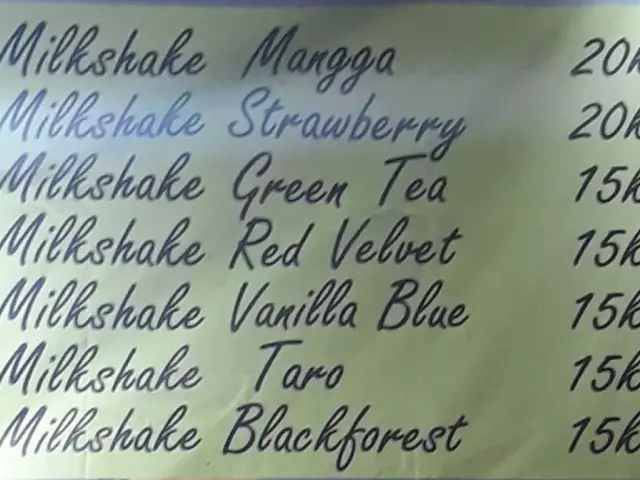 Milkshake Mangga 20k
Milkshake Strawberry 20k
Milkshake Green Tea 15k
Milkshake Red Velvet 15k
Milkshake Vanilla Blue 15k
Milkshake Taro 15k
Milkshake Blackforest 15k